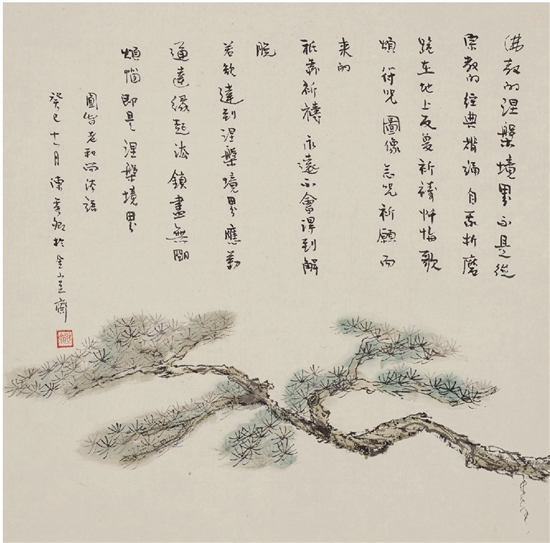 佛教的涅槃境界不是從
宗教的經典誦自折磨
跪在地上反复祈禱懺悔歌
頌符咒圖像念咒祈願而
来的
祇靠祈禱永遠不會得到解
脫
若欲達到涅槃境界應勤
通達緣起法鎖盡無明
煩惱即是涅槃境界
老和尚法語
癸巳十一月陳於金山齋